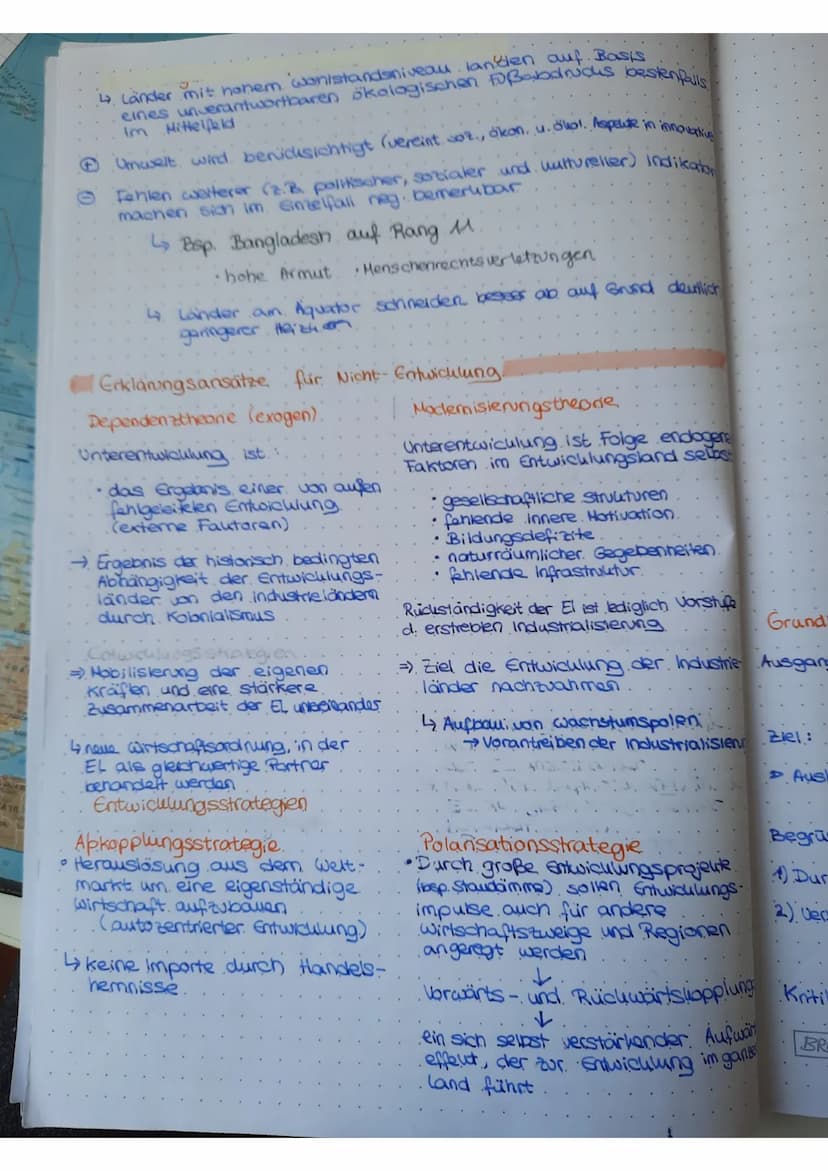 ↳ Länder mit hohem Wohlstandsniveau landen auf Basis
eines unverantwortbaren ökologischen Fußabdrucks bestenfalls
im Mittelfeld
⊕ Umwelt wird berücksichtigt (vereint soz., ökon. u. ökol. Aspekte in innovative
⊖ Fehlen weiterer (z.B. politischer, sozialer und kultureller) Indikator
machen sich im Einzelfall neg. bemerkbar
↳ Bsp. Bangladesh auf Rang 11
· hohe Armut · Menschenrechtsverletzungen
↳ Länder am Äquator schneiden besser ab auf Grund deutlich
geringerer
Erklärungsansätze für Nicht-Entwicklung
Dependenztheorie (exogen)
Unterentwicklung ist:
· das Ergebnis einer von außen
fehlgeleiteten Entwicklung
(externe Faktoren)
→ Ergebnis der historisch bedingten
Abhängigkeit der Entwicklungs-
länder von den Industrieländern
durch Kolonialismus
Entwicklungsstrategien
⇒ Mobilisierung der eigenen
Kräften und eine stärkere
Zusammenarbeit der EL untereinander
↳ neue Wirtschaftsordnung, in der
EL als gleichwertige Partner
behandelt werden
Modernisierungstheorie
Unterentwicklung ist Folge endogere
Faktoren im Entwicklungsland selbst
· gesellschaftliche Strukturen
· fehlende innere Motivation
· Bildungsdefizite
· naturräumlicher Gegebenheiten
· fehlende Infrastruktur
Rückständigkeit der El ist lediglich Vorstufe
d. erstreblen Industrialisierung
⇒ Ziel die Entwicklung der Industrie-
länder nachzuahmen
↳ Aufbau von Wachstumspolen
→ Vorantreiben der Industrialisier
Entwicklungsstrategien
Abkopplungsstrategie
• Herauslösung aus dem Welt-
markt um eine eigenständige
Wirtschaft aufzubauen
(autozentrierter Entwicklung)
↳ keine Importe durch Handels-
hemnisse
Polarisationsstrategie
• Durch große Entwicklungsprojekte
(bsp. Staudämme) sollen Entwicklungs-
impulse auch für andere
Wirtschaftszweige und Regionen
angeregt werden
↓
Vorwärts- und Rückwärtskopplung
↓
ein sich selbst verstärkender Aufwär
effekt, der zur Entwicklung im ganze
Land führt
Grund
Ausgan
Ziel:
Begrü
1) Dur
2) Ver
Kriti
BR